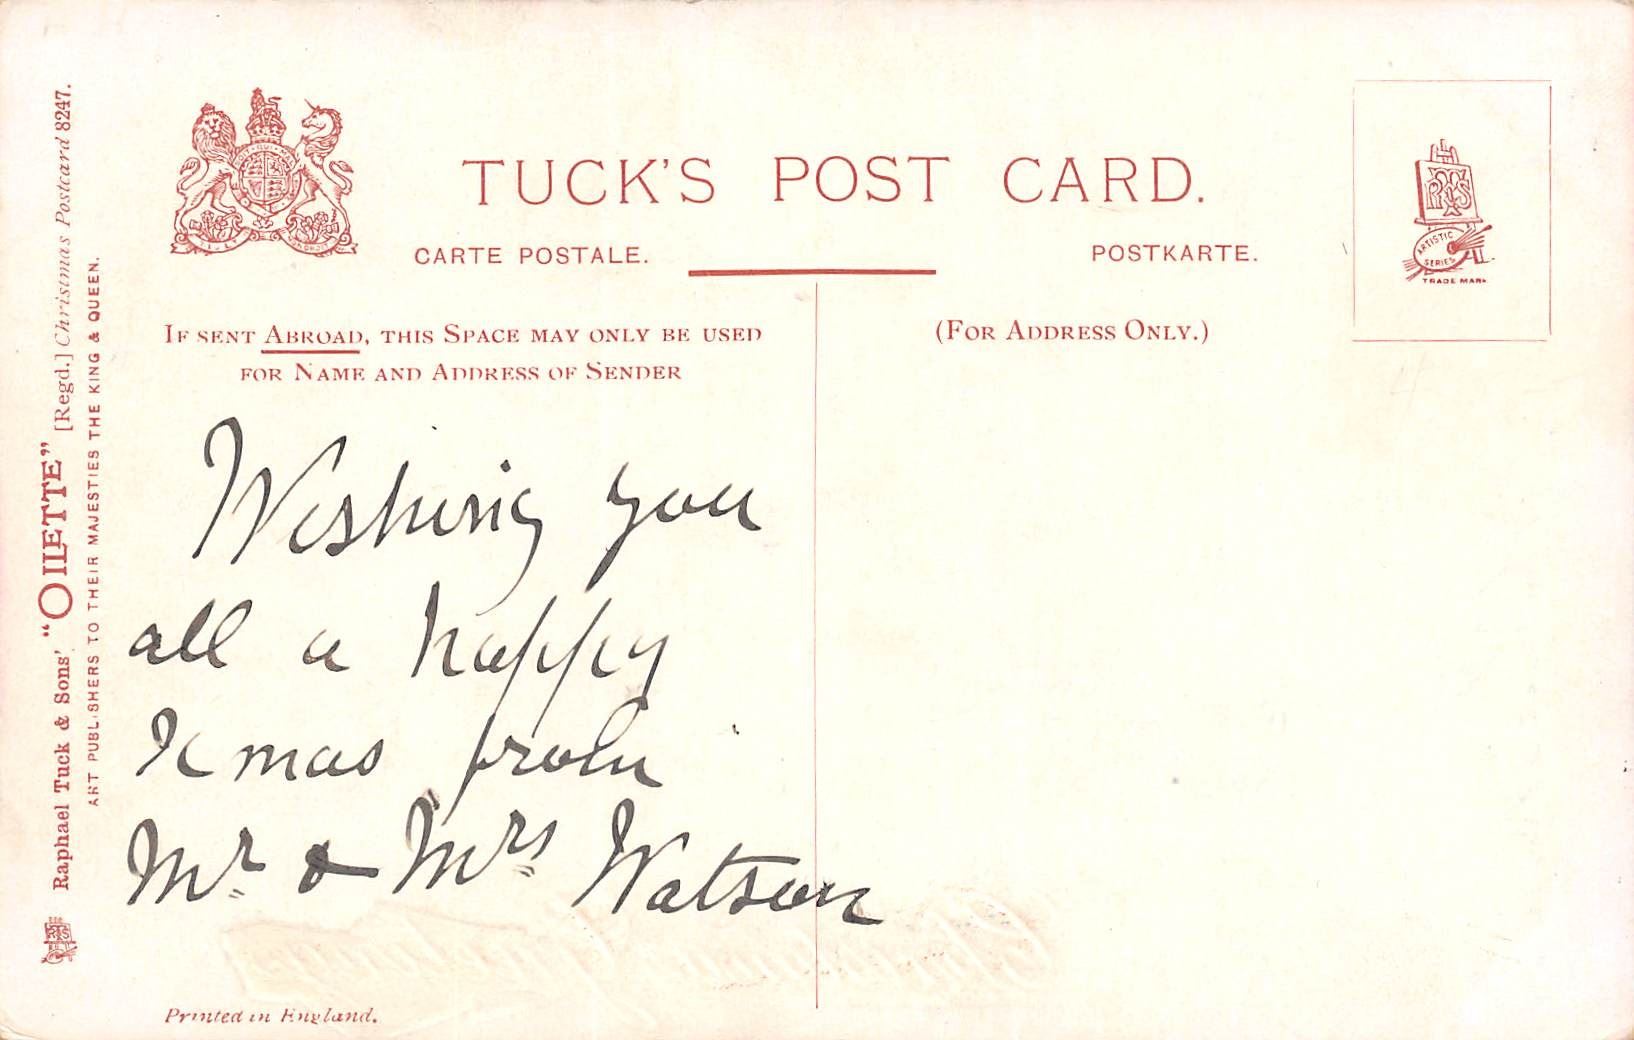 TUCK'S POST CARD.
CARTE POSTALE.
POSTKARTE.
RTS
ARTISTIC SERIES
TRADE MARK
IF SENT ABROAD, THIS SPACE MAY ONLY BE USED
FOR NAME AND ADDRESS OF SENDER
(FOR ADDRESS ONLY.)
Wishing you
all a happy
Xmas from
Mr & Mrs Watson
Raphael Tuck & Sons' "OILETTE" [Regd.] Christmas Postcard 8247.
ART PUBLISHERS TO THEIR MAJESTIES THE KING & QUEEN.
RTS
Printed in England.